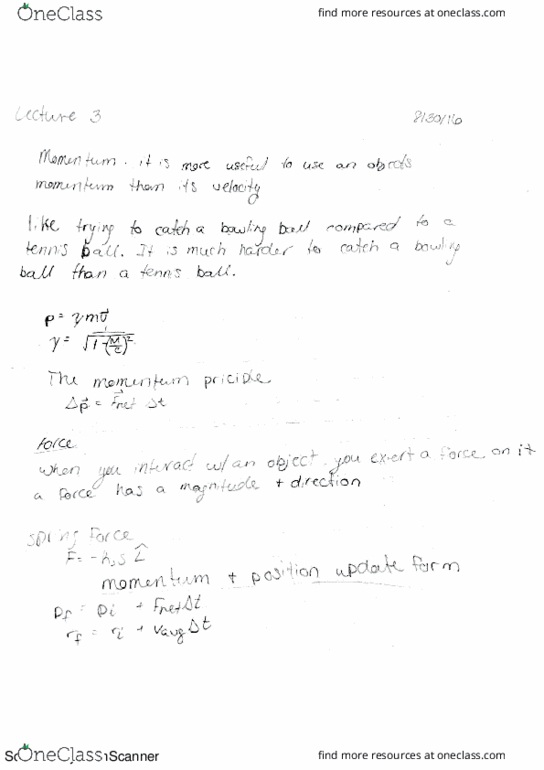 OneClass
find more resources at oneclass.com
Lecture 3
8/30/16
Momentum. it is more useful to use an objects
momentum than its velocity
like trying to catch a bowling ball compared to a
tennis ball. It is much harder to catch a bowling
ball than a tennis ball.
p = γmv⃗
γ = 1/√(1-(|v|/c)²)
The momentum priciple
Δp⃗ = F⃗net Δt
Force
when you interact w/ an object, you exert a force on it
a force has a magnitude + direction
spring force
F = -ks s L̂
momentum + position update form
pf = pi + FnetΔt
rf = ri + vavgΔt
OneClass
Scanner
find more resources at oneclass.com